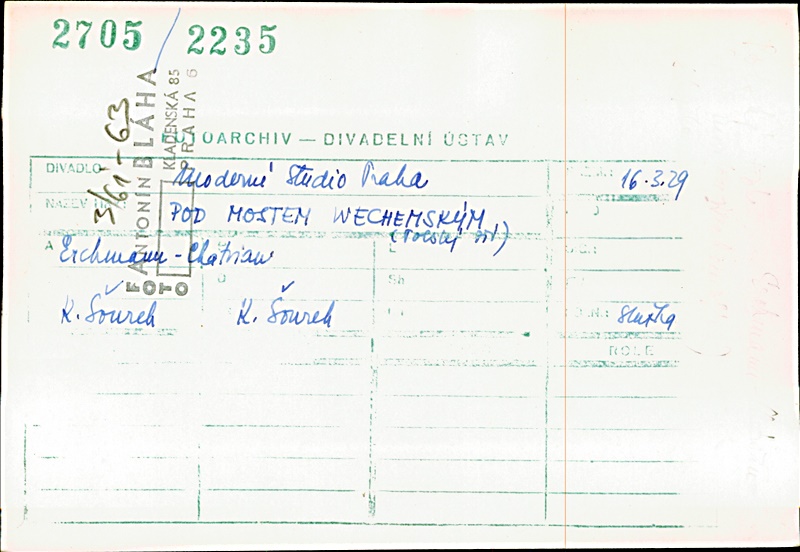 2705 / 2235
3/61-63
ANTONÍN BLÁHA
FOTO
KLADENSKÁ 85
PRAHA 6
FOTOARCHIV — DIVADELNÍ ÚSTAV
DIVADLO Moderní Studio Praha 16.3.29
NÁZEV POD MOSTEM WECHEMSKÝM
A Erckmann-Chatrian
K. Šourek K. Šourek
Sh
ROLE